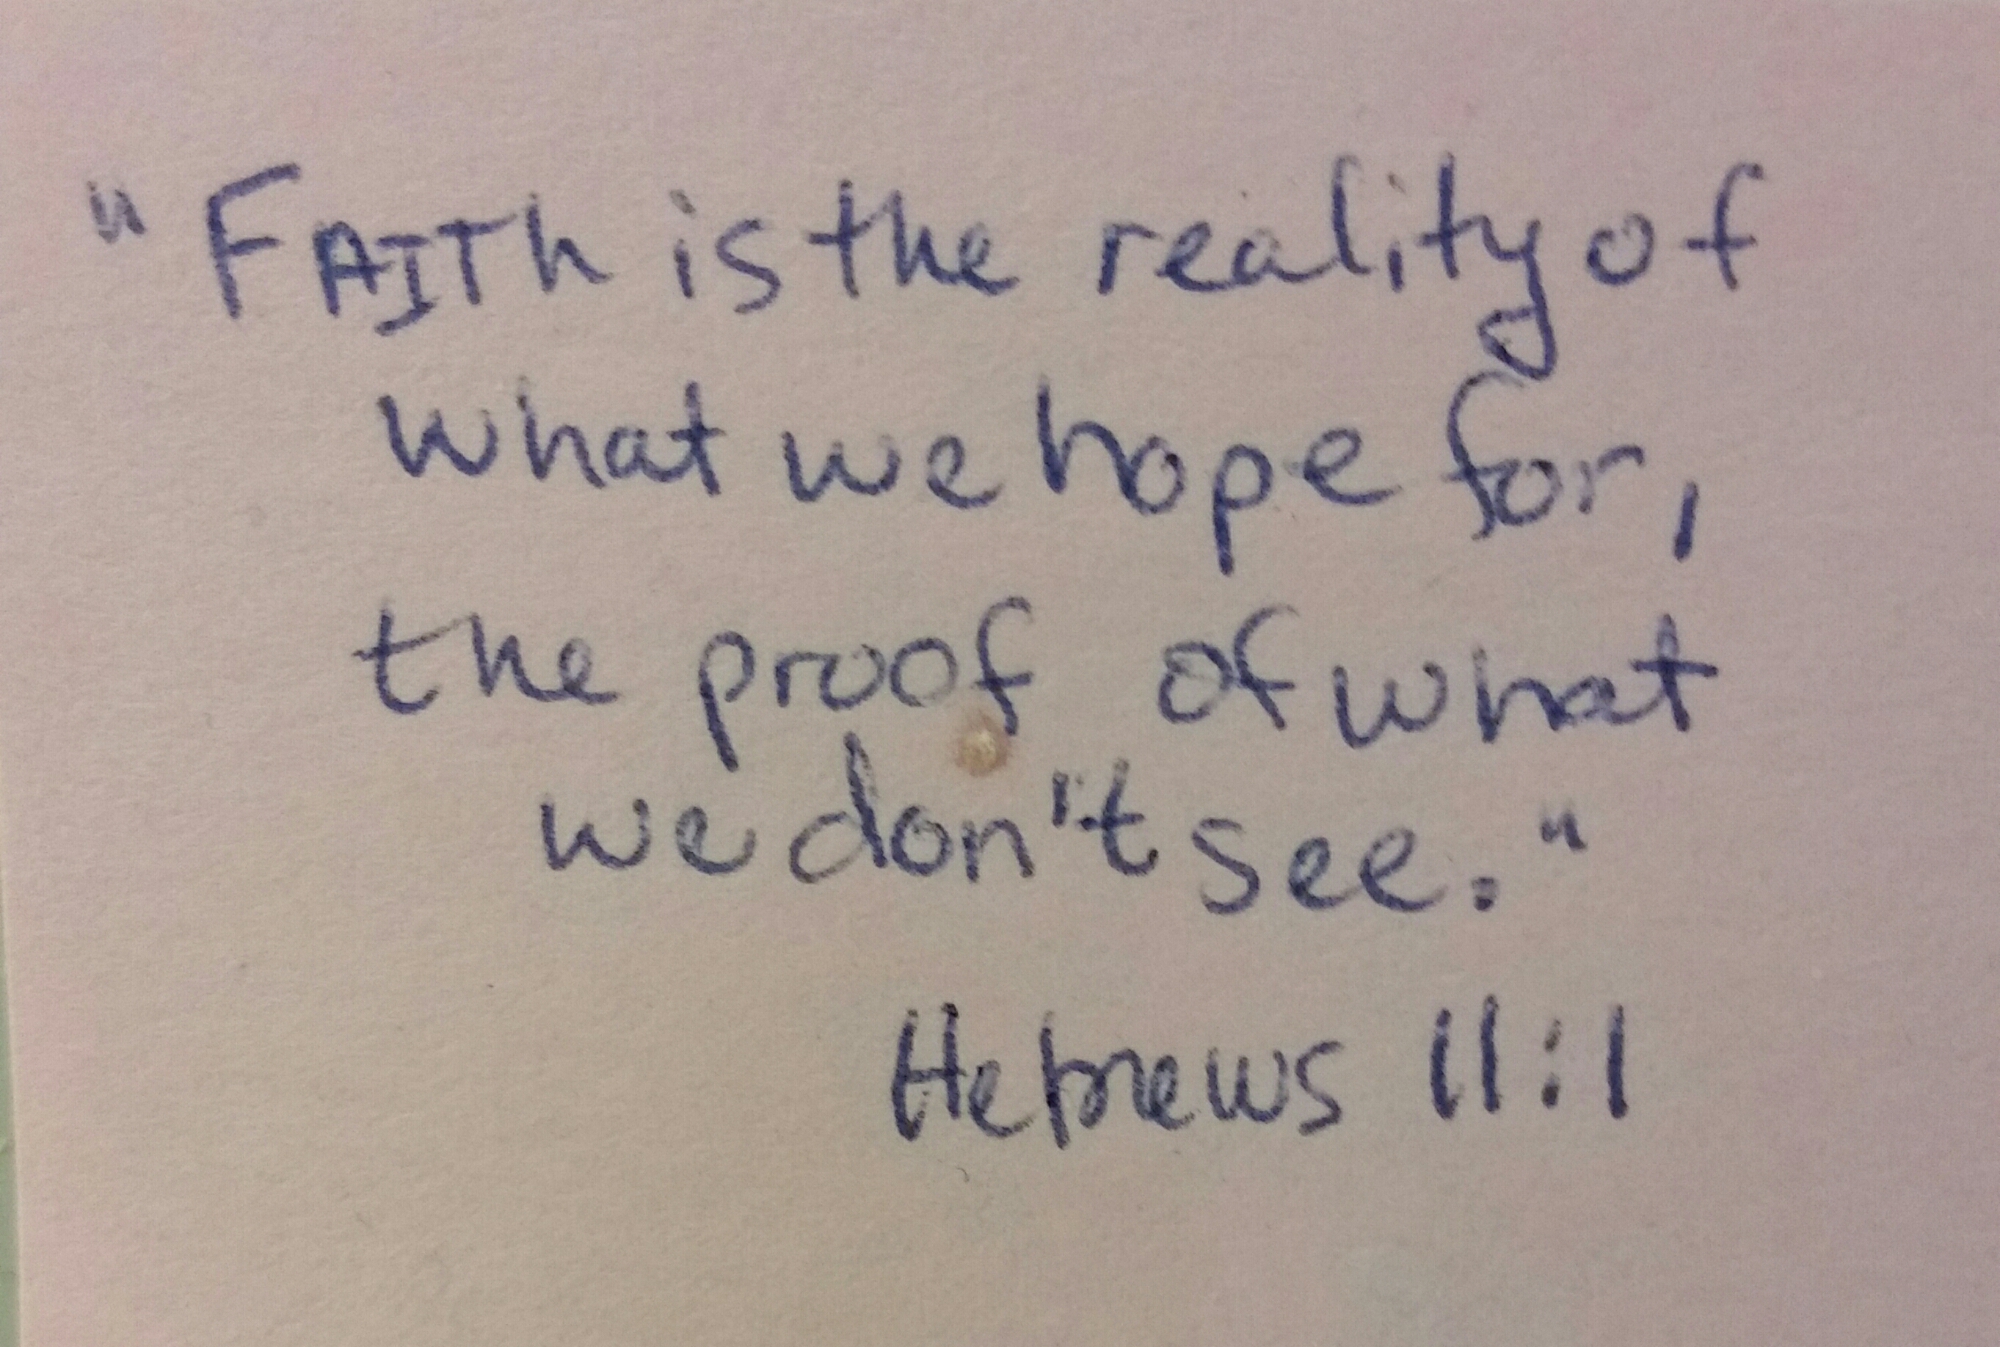 "FAITh is the reality of
what we hope for,
the proof of what
we don't see."
Hebrews 11:1